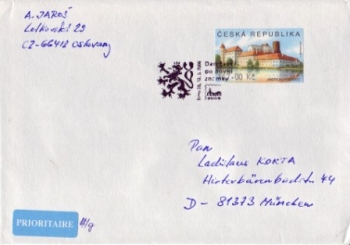 A. JAROŠ
Letkovská 23
CZ-66412 Oslavany
ČESKÁ REPUBLIKA
Kč
Pan
Ladislaus KORTA
Hinterbärenbadstr. 44
D- 81373 München
PRIORITAIRE